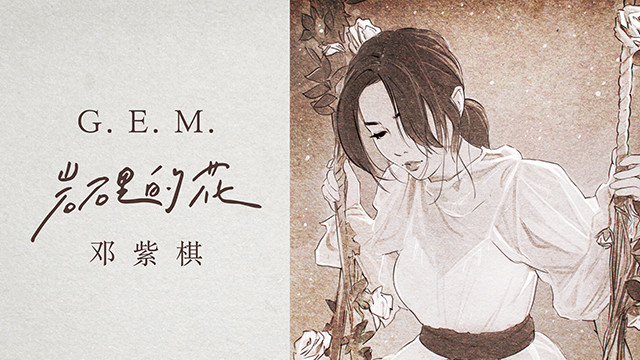 G. E. M.
岩石里的花
邓紫棋